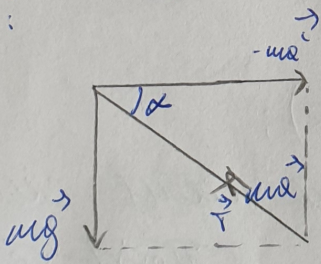 :
-ma⃗
α
ma⃗
T⃗
mg⃗